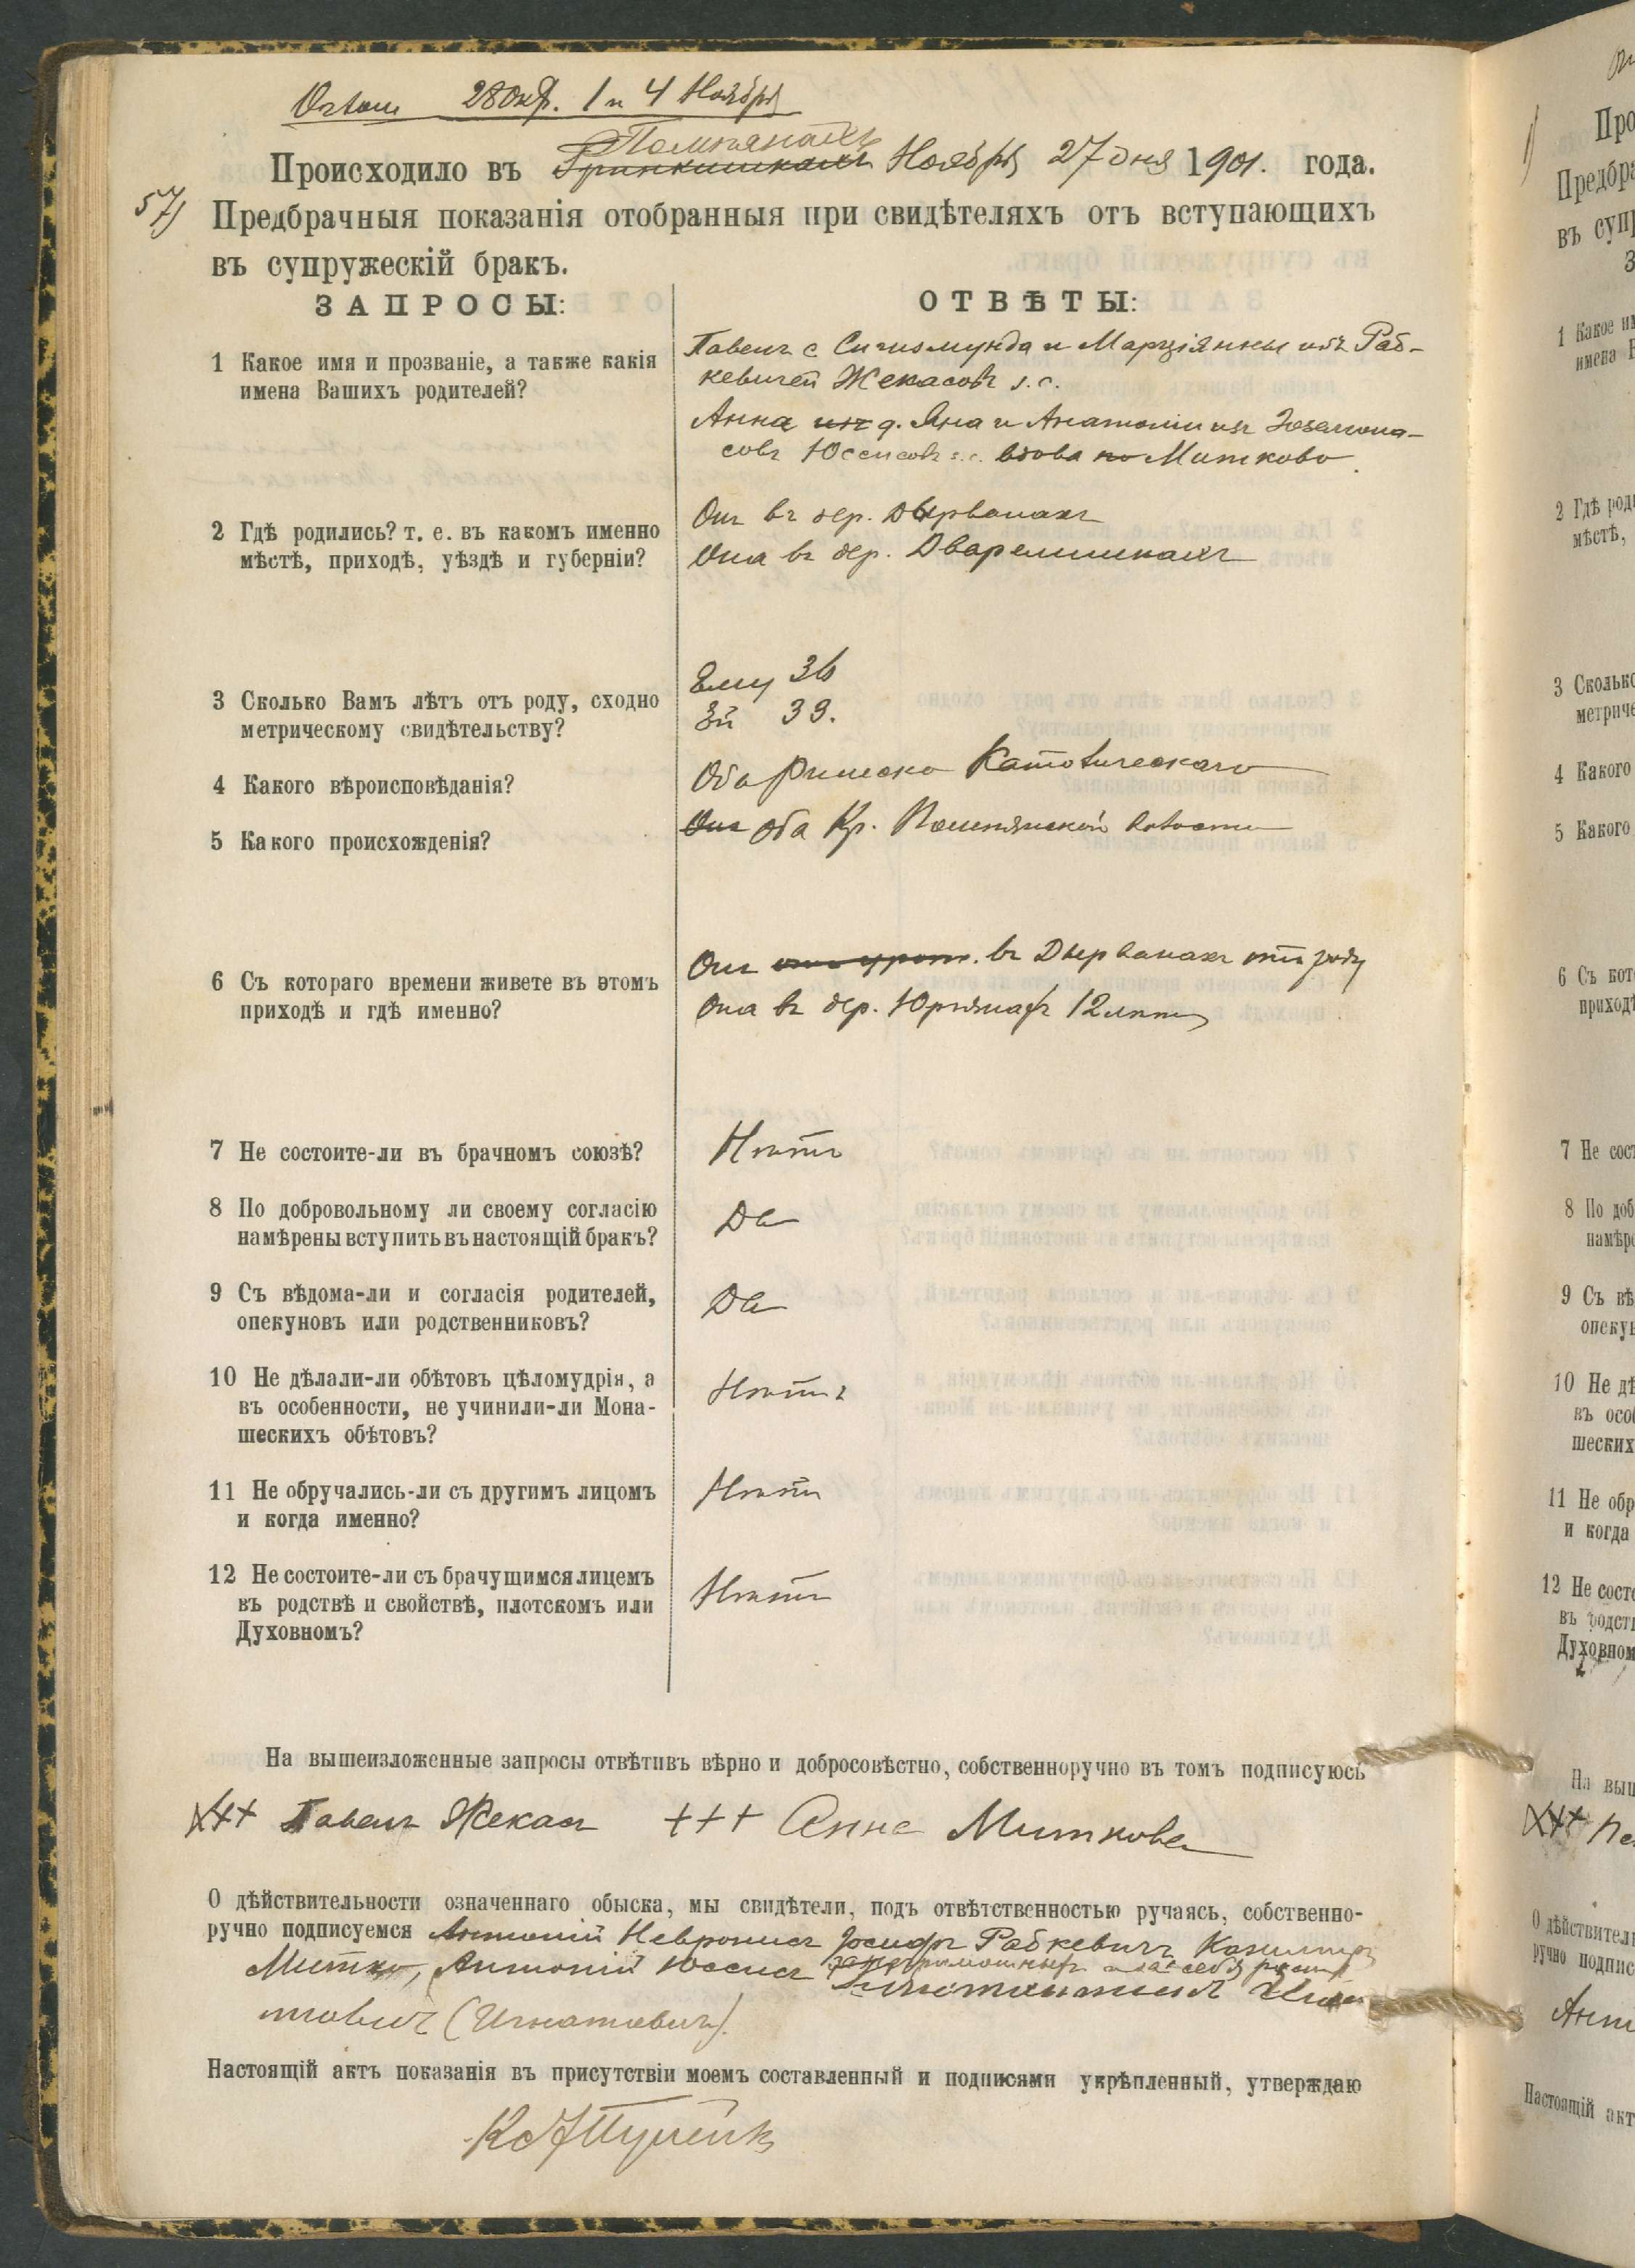 28 Окт. 1 и 4 Ноября
Помпянахъ
Происходило въ Гринкишкахъ Ноября 27 дня 1901. года.
57) Предбрачныя показанія отобранныя при свидѣтеляхъ отъ вступающихъ
въ супружескій бракъ.
ЗАПРОСЫ:
ОТВѢТЫ:
1 Какое имя и прозваніе, а также какія
имена Вашихъ родителей?
Павелъ с Сигизмунда и Марціянны изъ Раб-
кевичей Жекасовъ s. c.
Анна изъ д. Яна и Анатоліи изъ
совъ Юссисовъ s. c. вдова по Миткова
2 Гдѣ родились? т. е. въ какомъ именно
мѣстѣ, приходѣ, уѣздѣ и губерніи?
Онъ въ дер. Дырванахъ
Она въ дер. Дварелишкахъ
3 Сколько Вамъ лѣтъ отъ роду, сходно
метрическому свидѣтельству?
Ему 36
Ей 39.
4 Какого вѣроисповѣданія?
Оба Римско Католическаго
5 Какого происхожденія?
Онъ оба Кр. Помпянской волости
6 Съ котораго времени живете въ этомъ
приходѣ и гдѣ именно?
Онъ въ Дырванахъ отъ роду
Она въ дер. 12 лѣтъ
7 Не состоите-ли въ брачномъ союзѣ?
Нѣтъ
8 По добровольному ли своему согласію
намѣрены вступить въ настоящій бракъ?
Да
9 Съ вѣдома-ли и согласія родителей,
опекуновъ или родственниковъ?
Да
10 Не дѣлали-ли обѣтовъ цѣломудрія, а
въ особенности, не учинили-ли Мона-
шескихъ обѣтовъ?
Нѣтъ
11 Не обручались-ли съ другимъ лицомъ
и когда именно?
Нѣтъ
12 Не состоите-ли съ брачущимся лицемъ
въ родствѣ и свойствѣ, плотскомъ или
Духовномъ?
Нѣтъ
На вышеизложенные запросы отвѣтивъ вѣрно и добросовѣстно, собственноручно въ томъ подписуюсь
+++ Павелъ Жекасъ +++ Анна Миткова
О дѣйствительности означеннаго обыска, мы свидѣтели, подъ отвѣтственностью ручаясь, собственно-
ручно подписуемся Антоній Невронисъ Іосифъ Рабкевичъ Казимиръ
Митко, Антоній Юссисъ
(Игнатовичъ).
Настоящій актъ показанія въ присутствіи моемъ составленный и подписями укрѣпленный, утверждаю